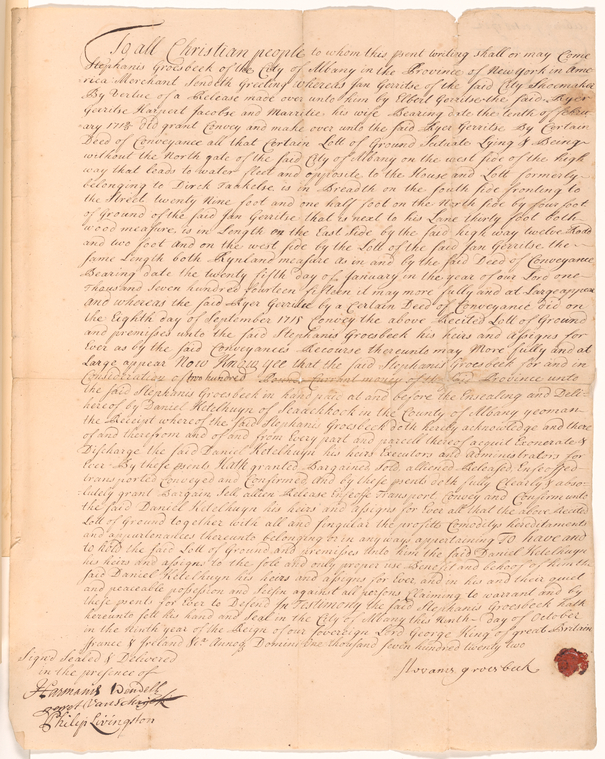 To all Christian people to whom this psent writing shall or may Come
Stephanis Groesbeek of the City of Albany in the Province of New York in Ame
rica Merchant Sendeth Greeting whereas Jan Gerritse of the said City Shoemaker
By Vertue of a Release made over unto him by Elbert Gerritse the said Ryer
Gerritse Harpert Jacobse and Marritie his wife Bearing date the tenth of
ary 1714 did grant Convey and make over unto the said Ryer Gerritse By Certain
Deed of Conveyance all that Certain Lott of Ground Scituate Lying & Being
without the North gate of the said City of Albany on the west side of the high
way that leads to water fleet and opposite to the House and Lott formerly
belonging to Dirck is in Breadth on the South side fronting to
the Street twenty Nine foot and one half foot on the North side by four foot
of Ground of the said Jan Gerritse that is next to his Lane thirty foot both
wood measure is in Length on the East Side by the said high way twelve Rodd
and two foot And on the west side by the Lott of the said Jan Gerritse the
same Length both Rynland measure as in and by the said Deed of Conveyance
Bearing date the twenty fifth day of January in the year of our Lord one
Thousand Seven hundred fourteen fifteen it may more fully and at Large appear
And whereas the said Ryer Gerritse by a Certain Deed of Conveyance did on
the Eighth day of September 1715 Convey the above Recited Lott of Ground
and premisses unto the said Stephanis Groesbeek his heirs and assigns for
Ever as by the said Conveyance Recourse thereunto may More fully and at
Large appear Now Know yee that the said Stephanis Groesbeek for and in
Consideration of two hundred Pounds Currant money of the said Province unto
the said Stephanis Groesbeek in hand paid at and before the Ensealing and Deli-
hereof by Daniel Ketelhuyn of Scaachkook in the County of Albany yeoman
the Receipt whereof the said Stephanis Groesbeek doth hereby acknowledge and there
of and therefrom and of and from Every part and parcell thereof acquit Exonerate &
Discharge the said Daniel Ketelhuyn his heirs Executors and administrators for
Ever By these psents Hath granted Bargained Sold aliened Released Enfeoffed
transported Conveyed and Confirmed And by these psents doth fully Clearly & abso-
lutely grant Bargain Sell alien Release Enfeoffe Transport Convey and Confirm unto
the said Daniel Ketelhuyn his heirs and assigns for Ever all that the above Recited
Lott of Ground together with all and singular the profitts Comoditys hereditaments
and appurtenances thereunto belonging or in anyways appertaining To have and
to hold the said Lott of Ground and premisses unto him the said Daniel Ketelhuyn
his heirs and assigns to the sole and only proper use Benefit and behoof of him the
said Daniel Ketelhuyn his heirs and assigns for Ever and in his and their quiet
and peaceable possession and Seisin against all persons Claiming to warrant and by
these psents for Ever to Defend In Testimony the said Stephanis Groesbeek hath
hereunto sett his hand and Seal in the City of Albany this day of October
in the Ninth year of the Reign of our Sovereign Lord George King of great Brittain
france & Ireland &c Annoq Domini One thousand Seven hundred twenty two
Signd Sealed & Delivered
in the presence of
Stovanis groesbeek
Harmanis Wendell
gerrot Van Schayck
Philip Livingston